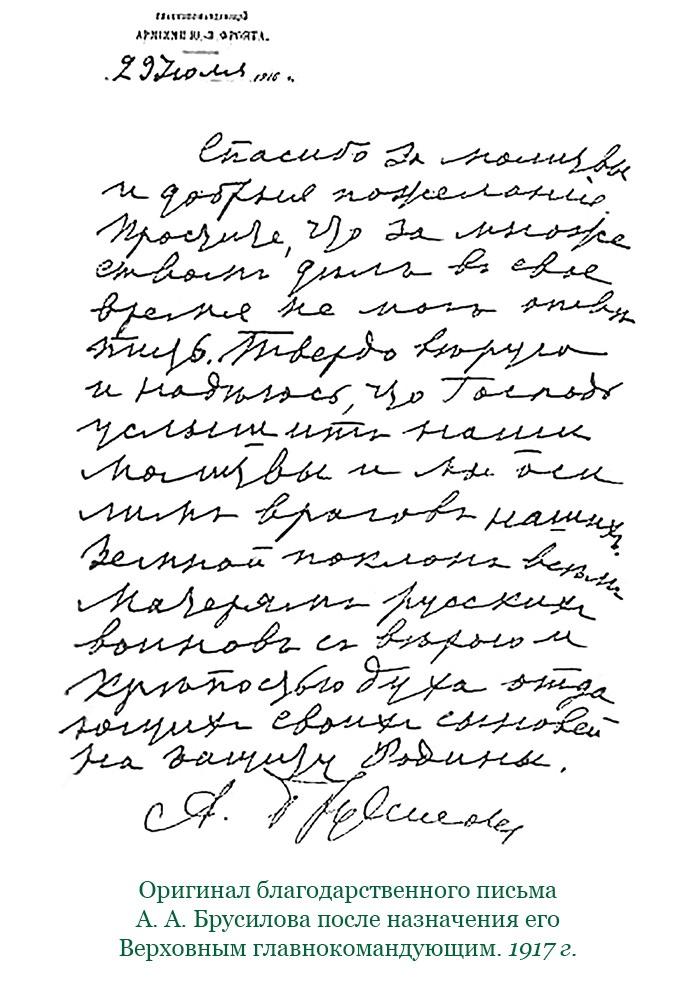 ГЛАВНОКОМАНДУЮЩІЙ
АРМІЯМИ Ю.-З. ФРОНТА.
29 Іюля 1916 г.
Спасибо за молитвы
и добрыя пожеланія.
Простите, что за множе
ствомъ дѣлъ въ свое
время не могъ отвѣ
тить. Твердо вѣрую
и надѣюсь, что Господь
услышитъ наши
молитвы и мы оси
лимъ враговъ нашихъ.
Земной поклонъ всѣмъ
матерямъ русскихъ
воиновъ съ вѣрою и
крѣпостью духа отда
ющихъ своихъ сыновей
на защиту Родины.
А. Брусиловъ
Оригинал благодарственного письма
А. А. Брусилова после назначения его
Верховным главнокомандующим. 1917 г.